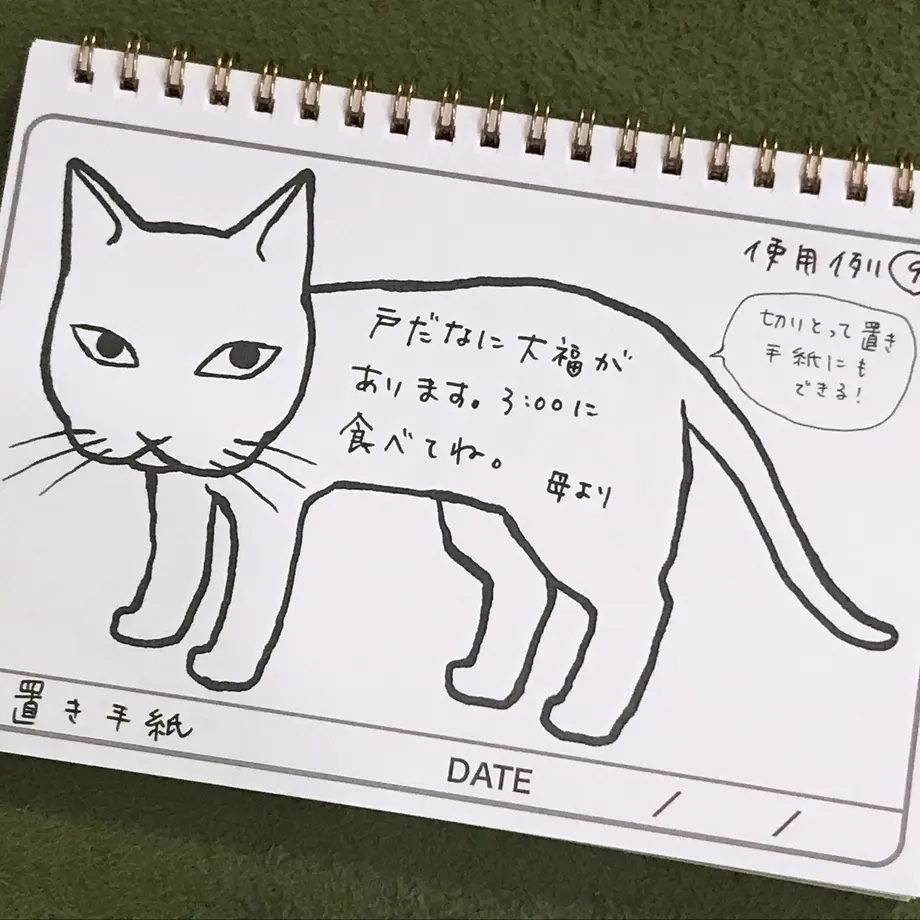 使用例⑨
切りとって置き
手紙にも
できる!
戸だなに大福が
あります。3:00に
食べてね。
母より
置き手紙
DATE / /